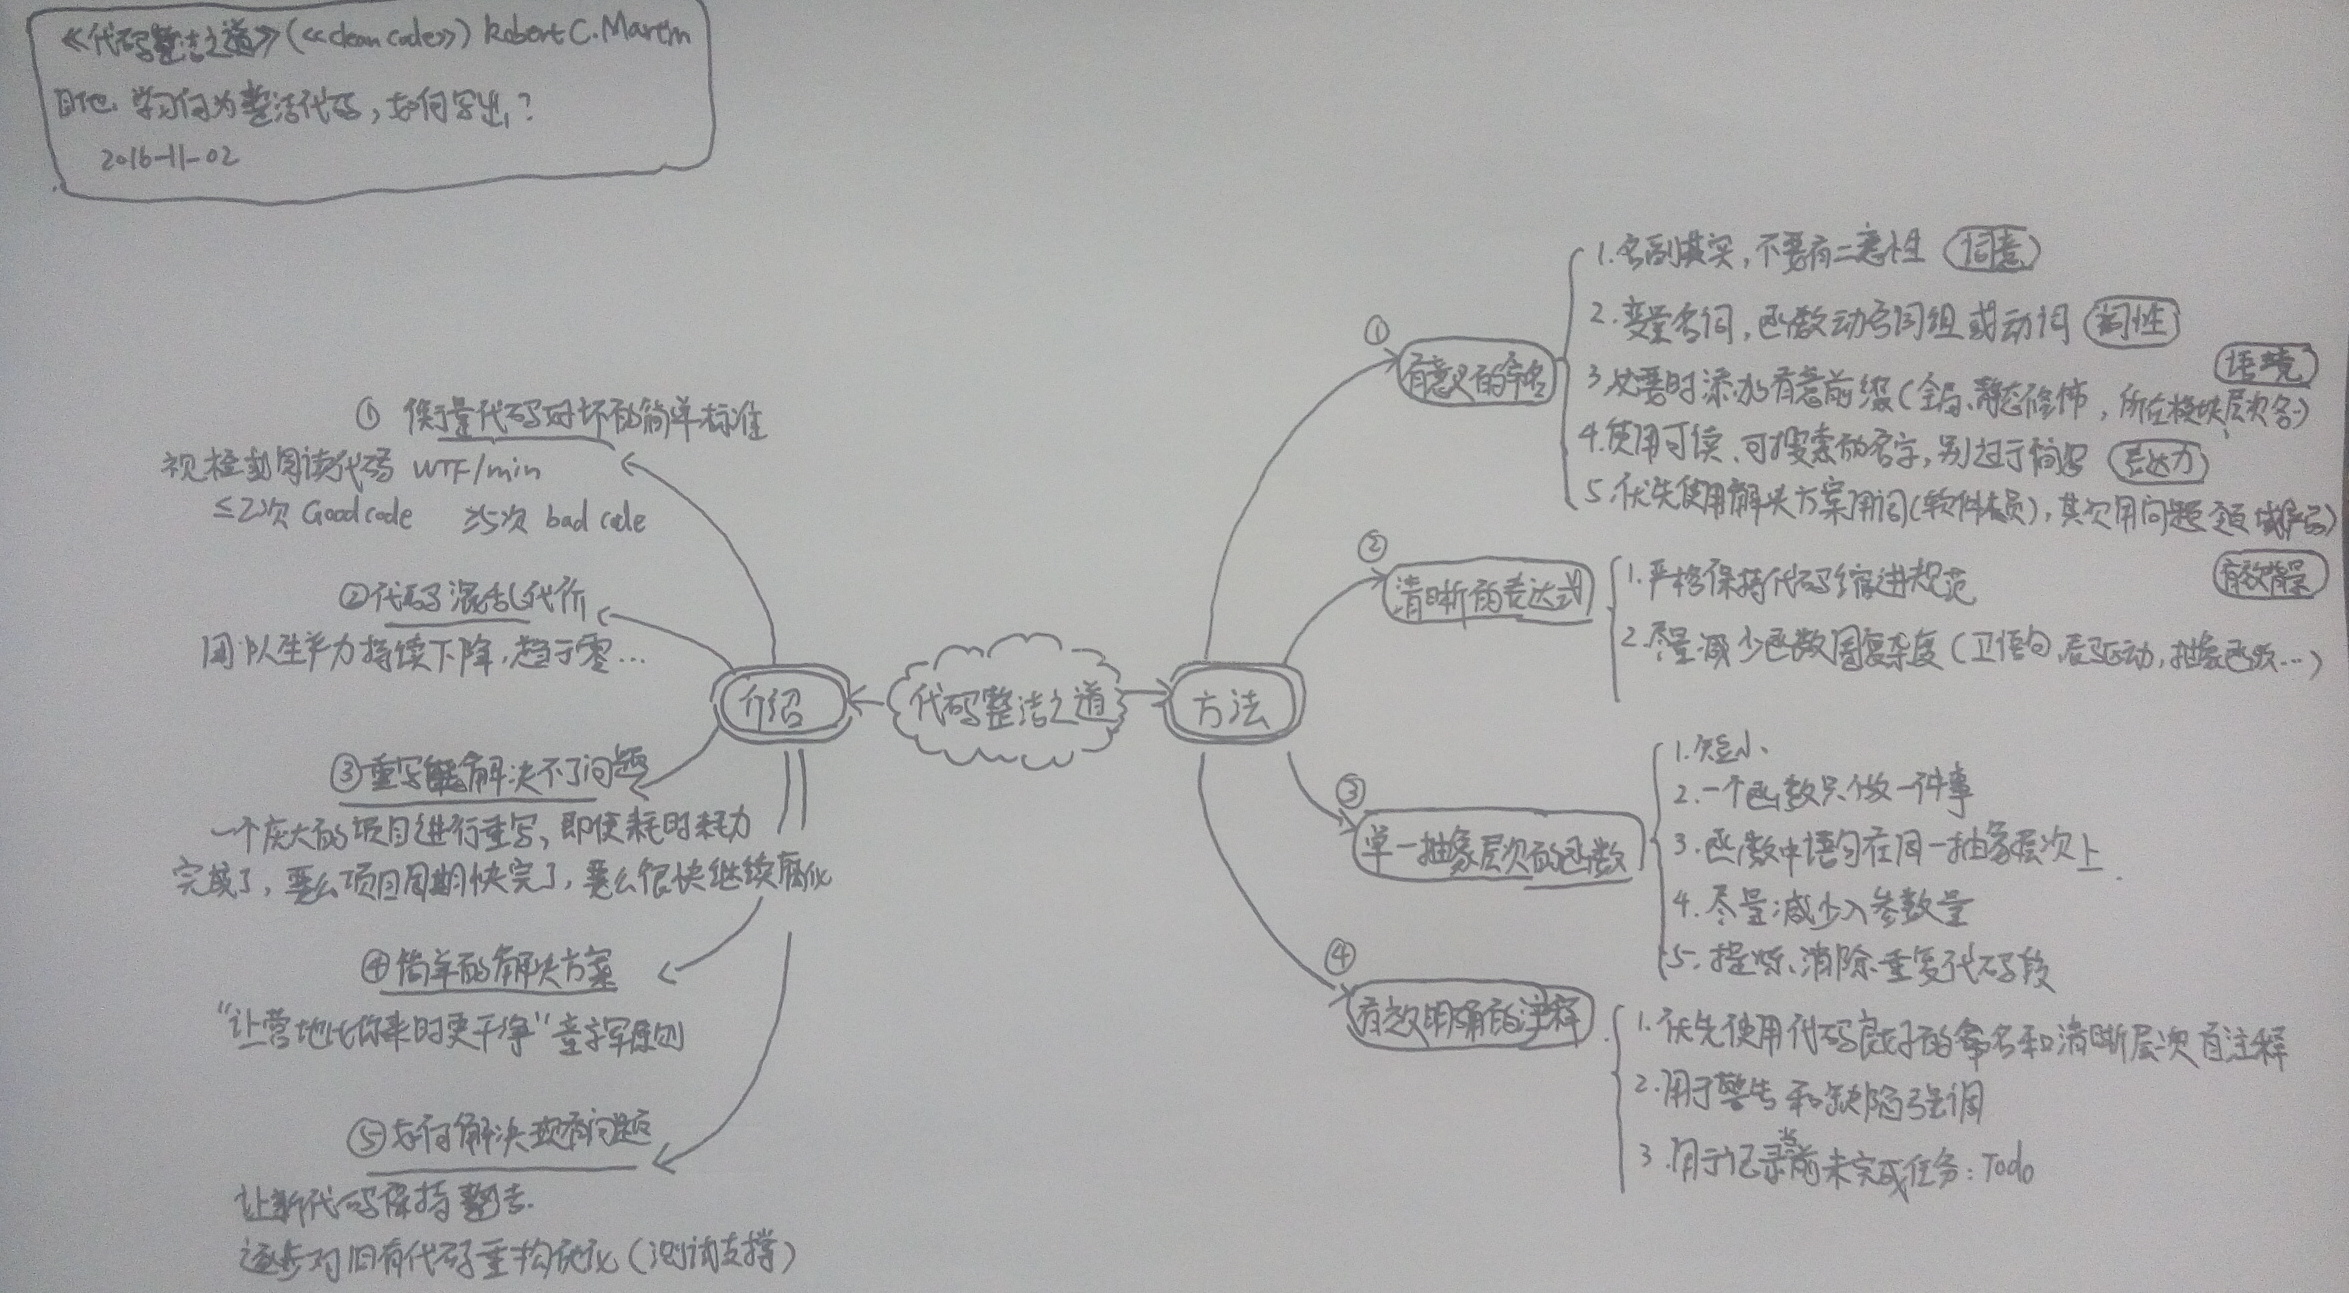 《代码整洁之道》(《clean code》) Robert C. Martin
目的: 学习何为整洁代码,如何写出?
2016-11-02
① 衡量代码好坏的简单标准
视检和阅读代码 WTF/min
≤2次 Good code ≥5次 bad code
②代码混乱代价
团队生产力持续下降,趋于零...
③重写解决不了问题
一个庞大的项目进行重写,即使耗时耗力
完成了,要么项目周期快完了,要么很快继续腐化
④简单的解决方案
“让营地比你来时更干净”童子军原则
⑤如何解决现有问题
让新代码保持整洁.
逐步对旧有代码重构优化(测试支撑)
介绍
代码整洁之道
方法
①
有意义的命名
1.名副其实,不要有二意性 词意
2.变量名词,函数动名词组或动词 词性
3.必要时添加有意前缀(全局、静态修饰,所在模块层次名) 语境
4.使用可读、可搜索的名字,别过于简写 表达力
5.优先使用解决方案用词(软件人员),其次用问题领域(产品)
有效背景
②
清晰的表达式
1.严格保持代码缩进规范
2.尽量减少函数圈复杂度(卫语句,表驱动,抽象函数...)
③
单一抽象层次的函数
1.短小
2.一个函数只做一件事
3.函数中语句在同一抽象层次上
4.尽量减少入参数量
5.提炼、消除重复代码段
④
有效明确的注释
1.优先使用代码良好的命名和清晰层次自注释
2.用于警告和缺陷强调
3.用于记录当前未完成任务:Todo